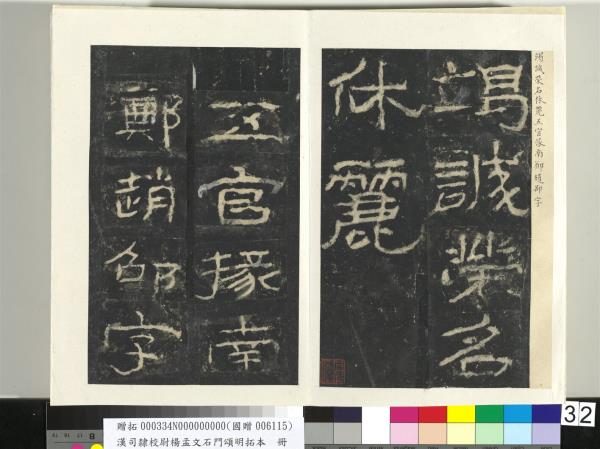 竭誠榮名
休麗
五官掾南
鄭趙邵字
竭誠榮名休麗五官掾南鄭趙邵字
贈拓 000334N000000000(國贈 006115)
漢司隸校尉楊孟文石門頌明拓本 冊
32
8